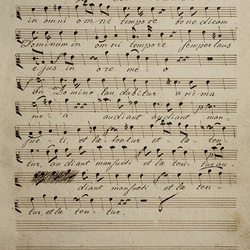 in omni omni tempore benedicam
Dominum in omni tempore semper laus
ejus in ore meo
in Domino laudabitur anima
mea audiant audiant man-
sueti, et laeten- tur et laeten-
tur, audiant mansueti et laeten- tur au-
diant mansueti et laeten-
tur et laeten- tur.